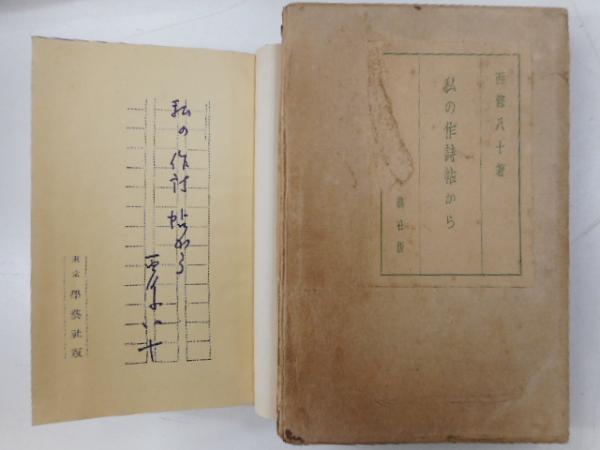 西條八十著
私の作詩帖から
藝社版
私の作詩帖から
西條八十
東京 學藝社版